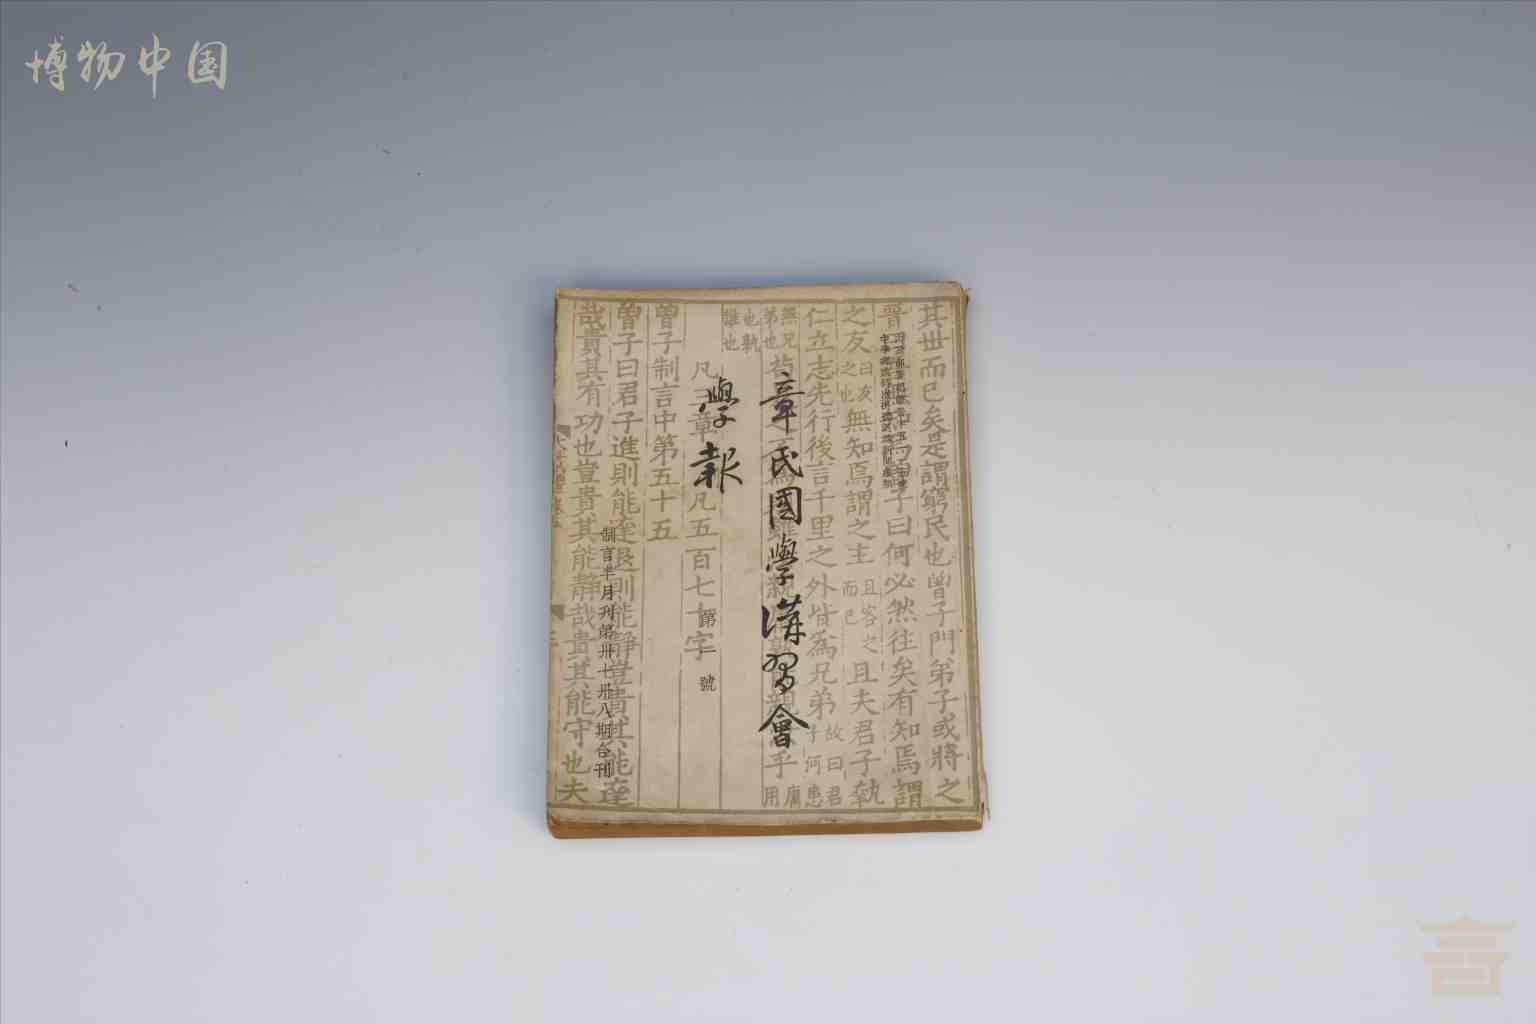 博物中国
章氏國學講習會
學報
第一號
制言半月刊第卅七卅八期合刊
其世而已矣是謂窮民也曾子門弟子或將之
晉
子曰何必然往矣有知焉謂
之友曰友之也無知焉謂之主且客之而已且夫君子執
仁立志先行後言千里之外皆為兄弟故曰君子何患
無兄弟也苟
乎庸用
也執誰也
凡三章 凡五百七十字
曾子制言中第五十五
曾子曰君子進則能達退則能靜豈貴其能達
哉貴其有功也豈貴其能靜哉貴其能守也夫